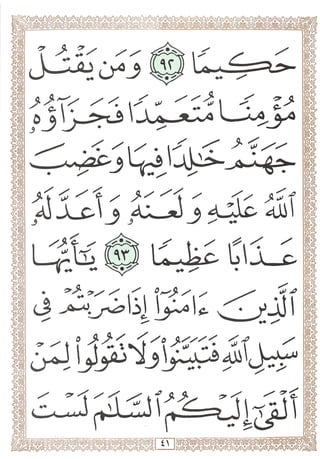 حَكِيمًا ٩٢ وَمَن يَقْتُلْ
مُؤْمِنًا مُّتَعَمِّدًا فَجَزَآؤُهُۥ
جَهَنَّمُ خَٰلِدًا فِيهَا وَغَضِبَ
ٱللَّهُ عَلَيْهِ وَلَعَنَهُۥ وَأَعَدَّ لَهُۥ
عَذَابًا عَظِيمًا ٩٣ يَٰٓأَيُّهَا
ٱلَّذِينَ ءَامَنُوٓا۟ إِذَا ضَرَبْتُمْ فِى
سَبِيلِ ٱللَّهِ فَتَبَيَّنُوا۟ وَلَا تَقُولُوا۟ لِمَنْ
أَلْقَىٰٓ إِلَيْكُمُ ٱلسَّلَٰمَ لَسْتَ
٤١